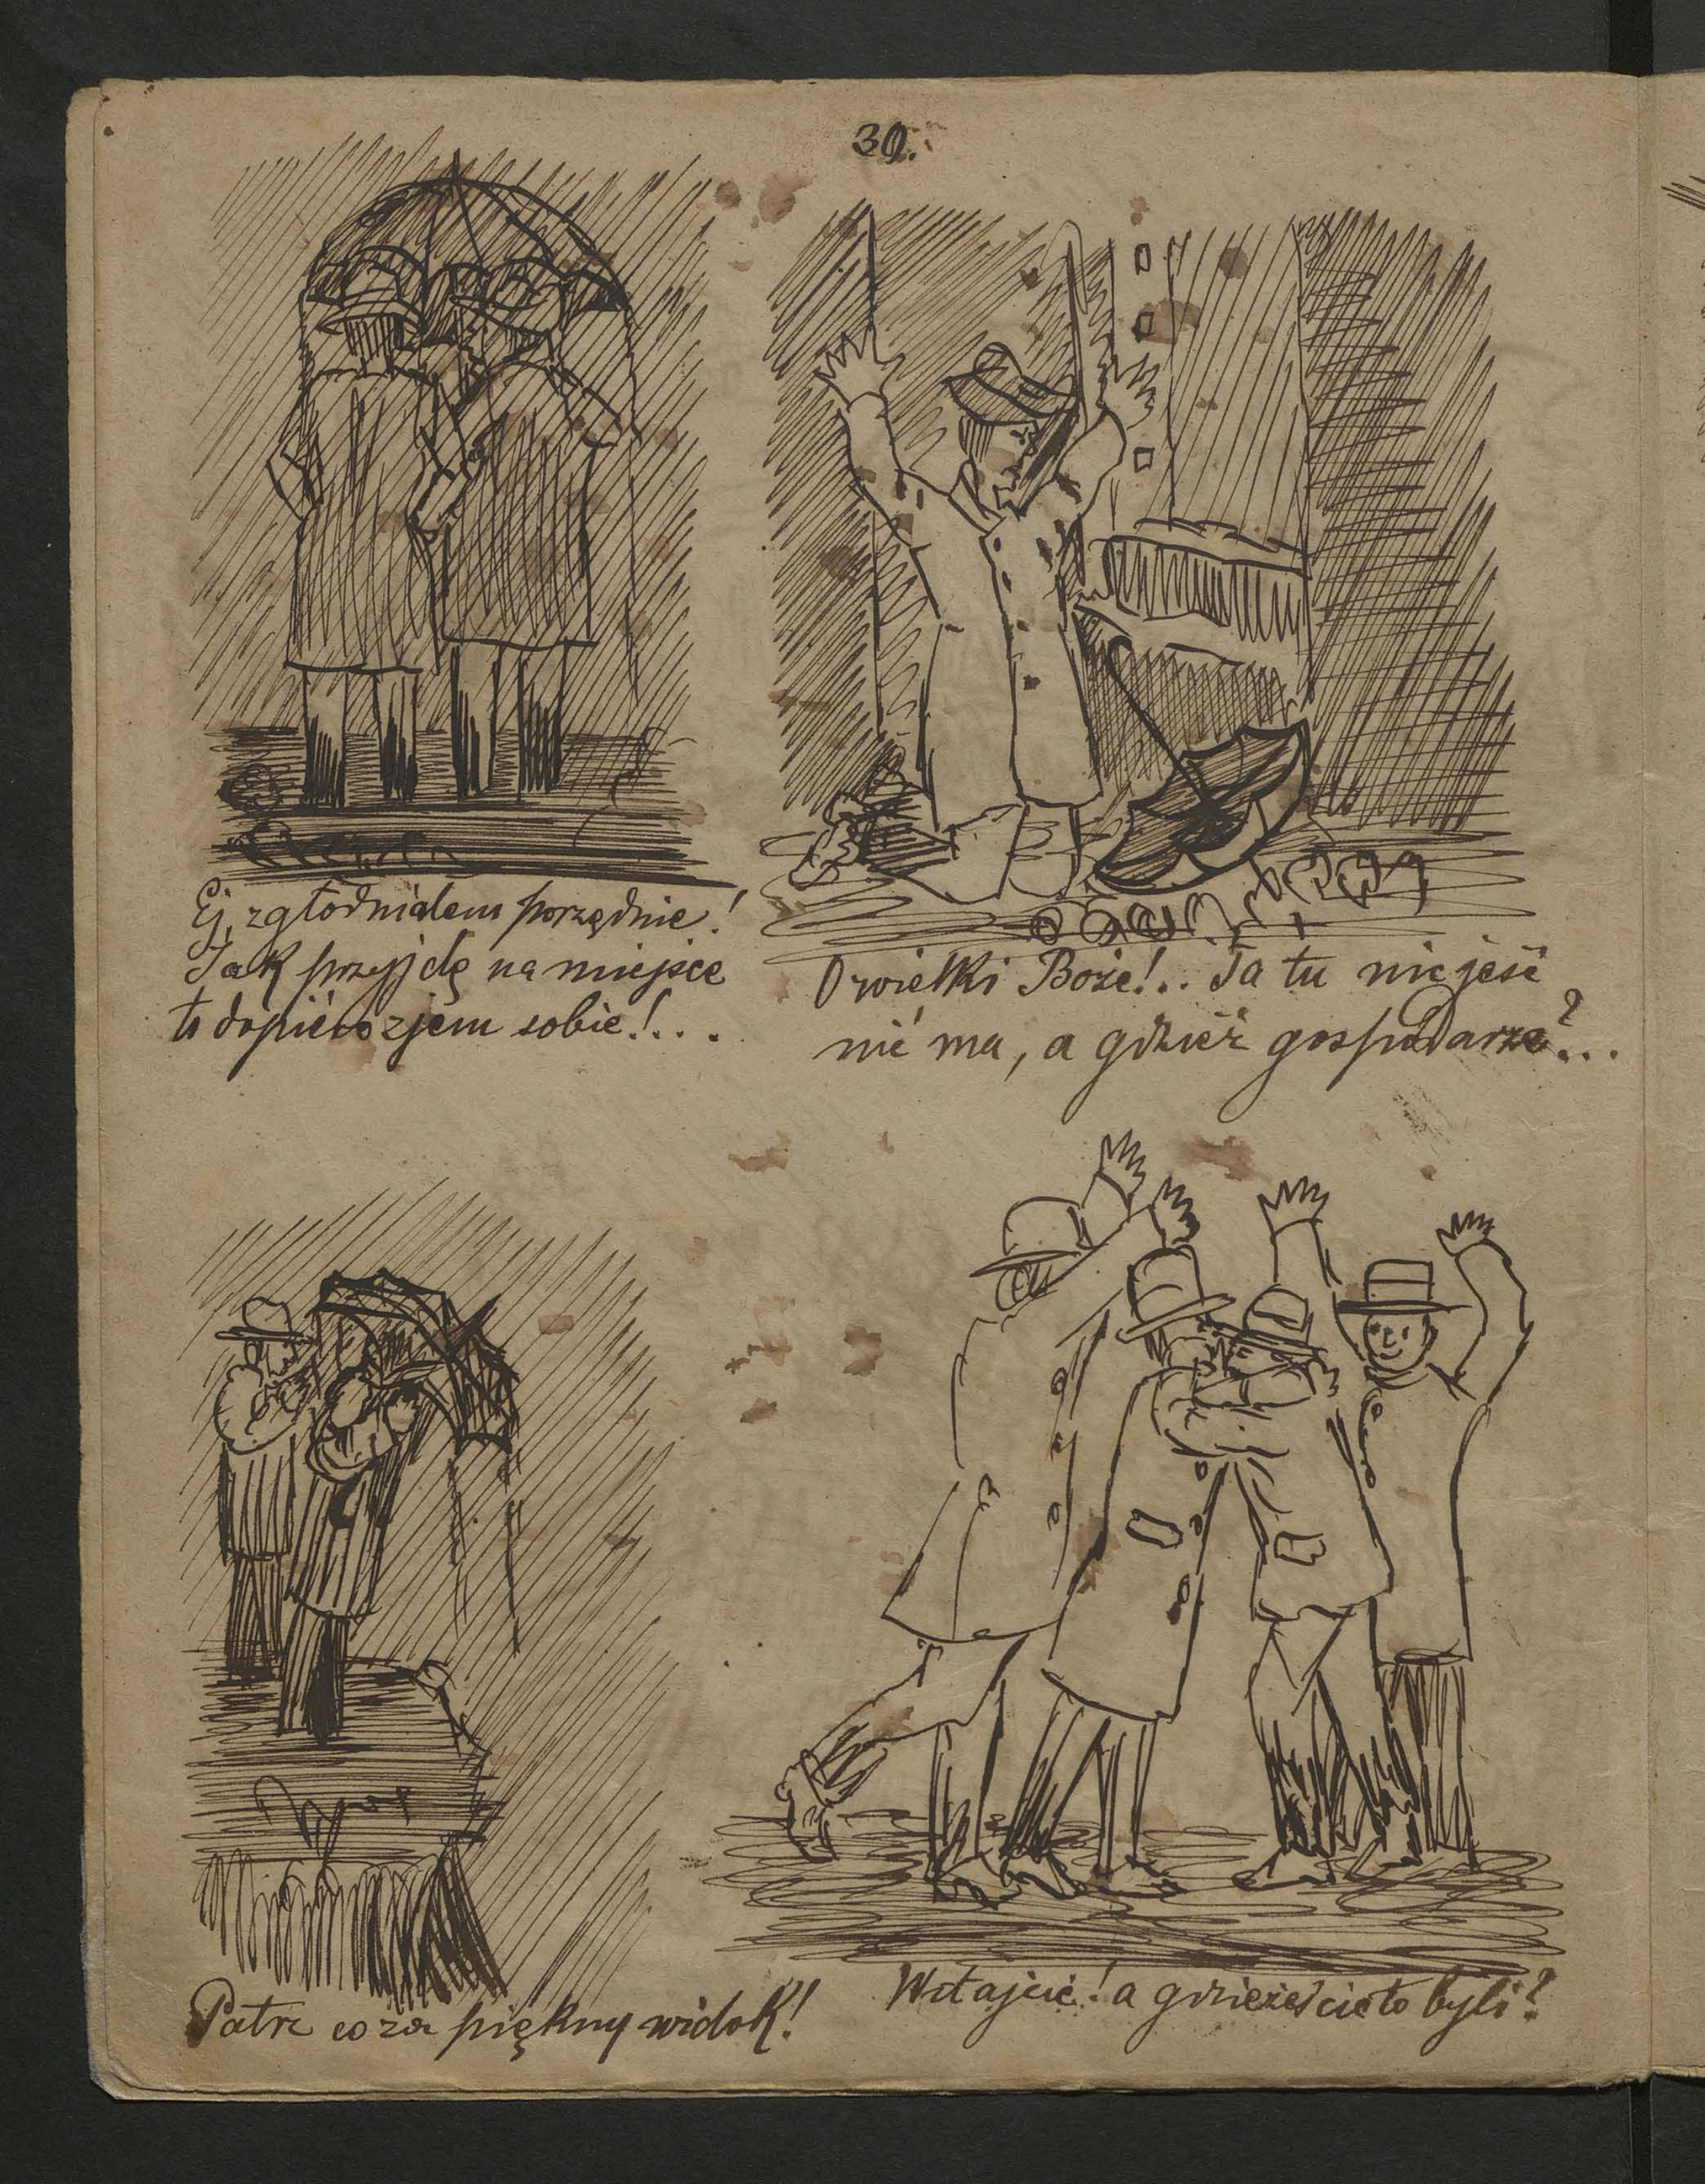 30.
Ej, zgłodniałem porządnie!
Jak przyjdę na miejsce
to dopiéro zjem sobie!...
O wielki Boże!.. Ta tu nic jeść
nié ma, a gdzież gospodarze?...
Patrz co za piękny widok!
Witajcie! a gdzieżeście to byli?